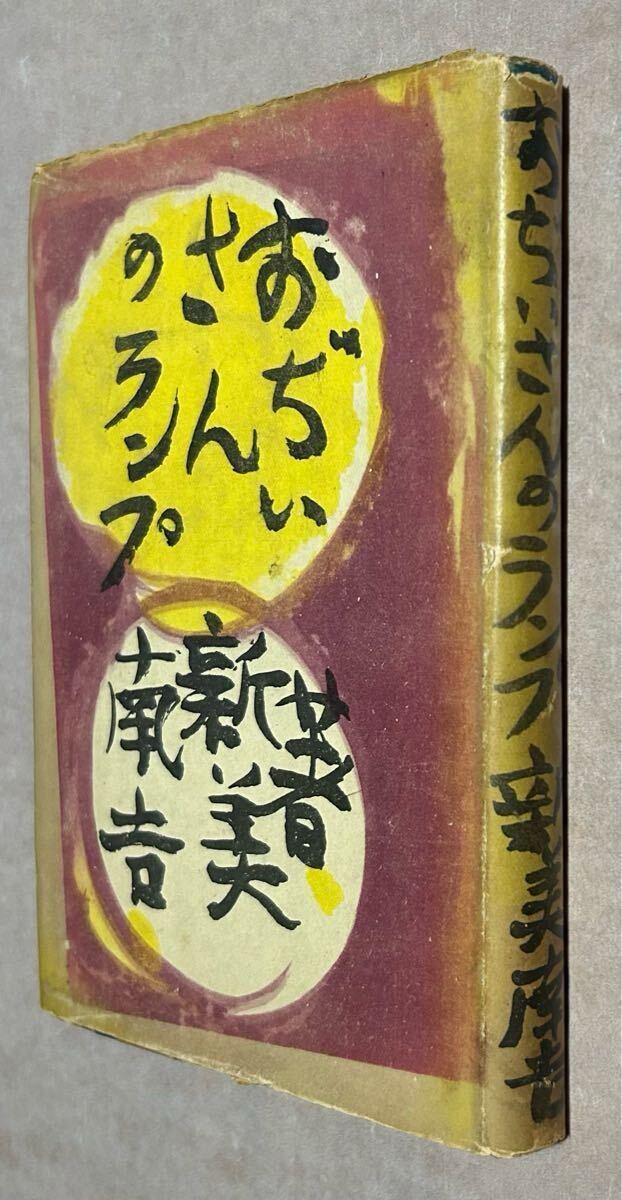 おぢい
さん
のランプ
著者
新美
南吉
おぢいさんのランプ 新美南吉